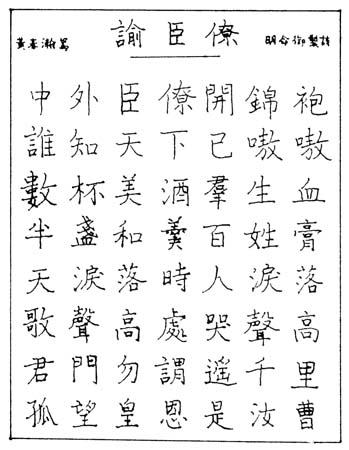 黃春 寫
諭臣僚
明命御製詩
中外臣僚開錦袍
誰知天下已嗷嗷
數杯美酒羣生血
半盞和羹百姓膏
天淚落時人淚落
歌聲高處哭聲高
君門勿謂遙千里
孤望皇恩是汝曹